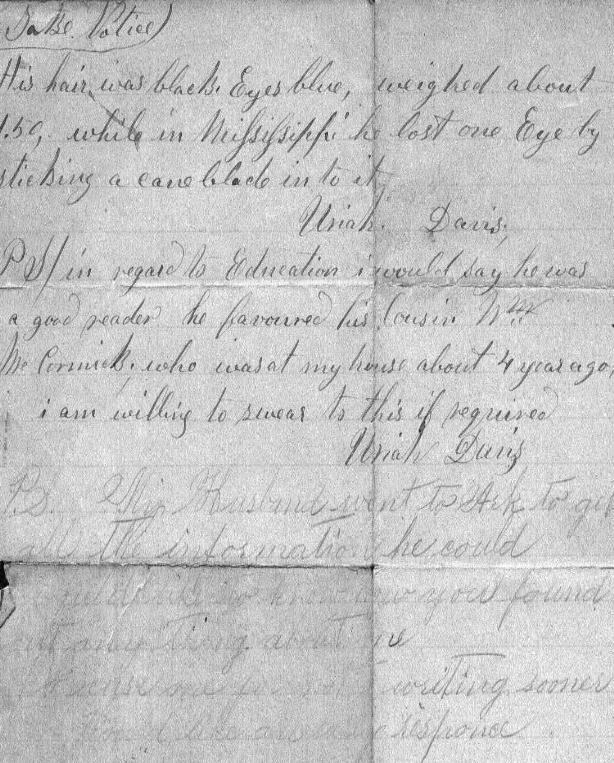 (Take Notice)
His hair was black Eyes blue, weighed about
1.50, while in Mississippi he lost one Eye by
sticking a cane blade in to it,
Uriah. Davis,
P S/ in regard to Education i would say he was
a good reader he favoured his Cousin Wm
Mc Cormick, who was at my house about 4 year ago,
i am willing to swear to this if required
Uriah Davis
P.S. My Husband went to Ark to get
all the information he could
would like to know how you found
out any thing about me
Excuse me for not writing sooner